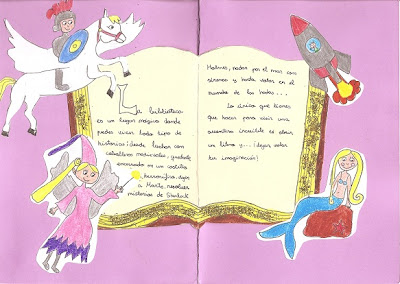 La biblioteca
es un lugar mágico donde
podes vivir todo tipo de
historias: desde luchar con
caballeros medievales, quedarte
encerrado en un castillo
horrorífico, viajar
a Marte, resolver
misterios de Sherlock
Holmes, nadar por el mar con
sirenas y hasta volar en el
mundo de las hadas...
Lo único que tienes
que hacer para vivir una
aventura increíble es abrir
un libro y... ¡dejar volar
tu imaginación!